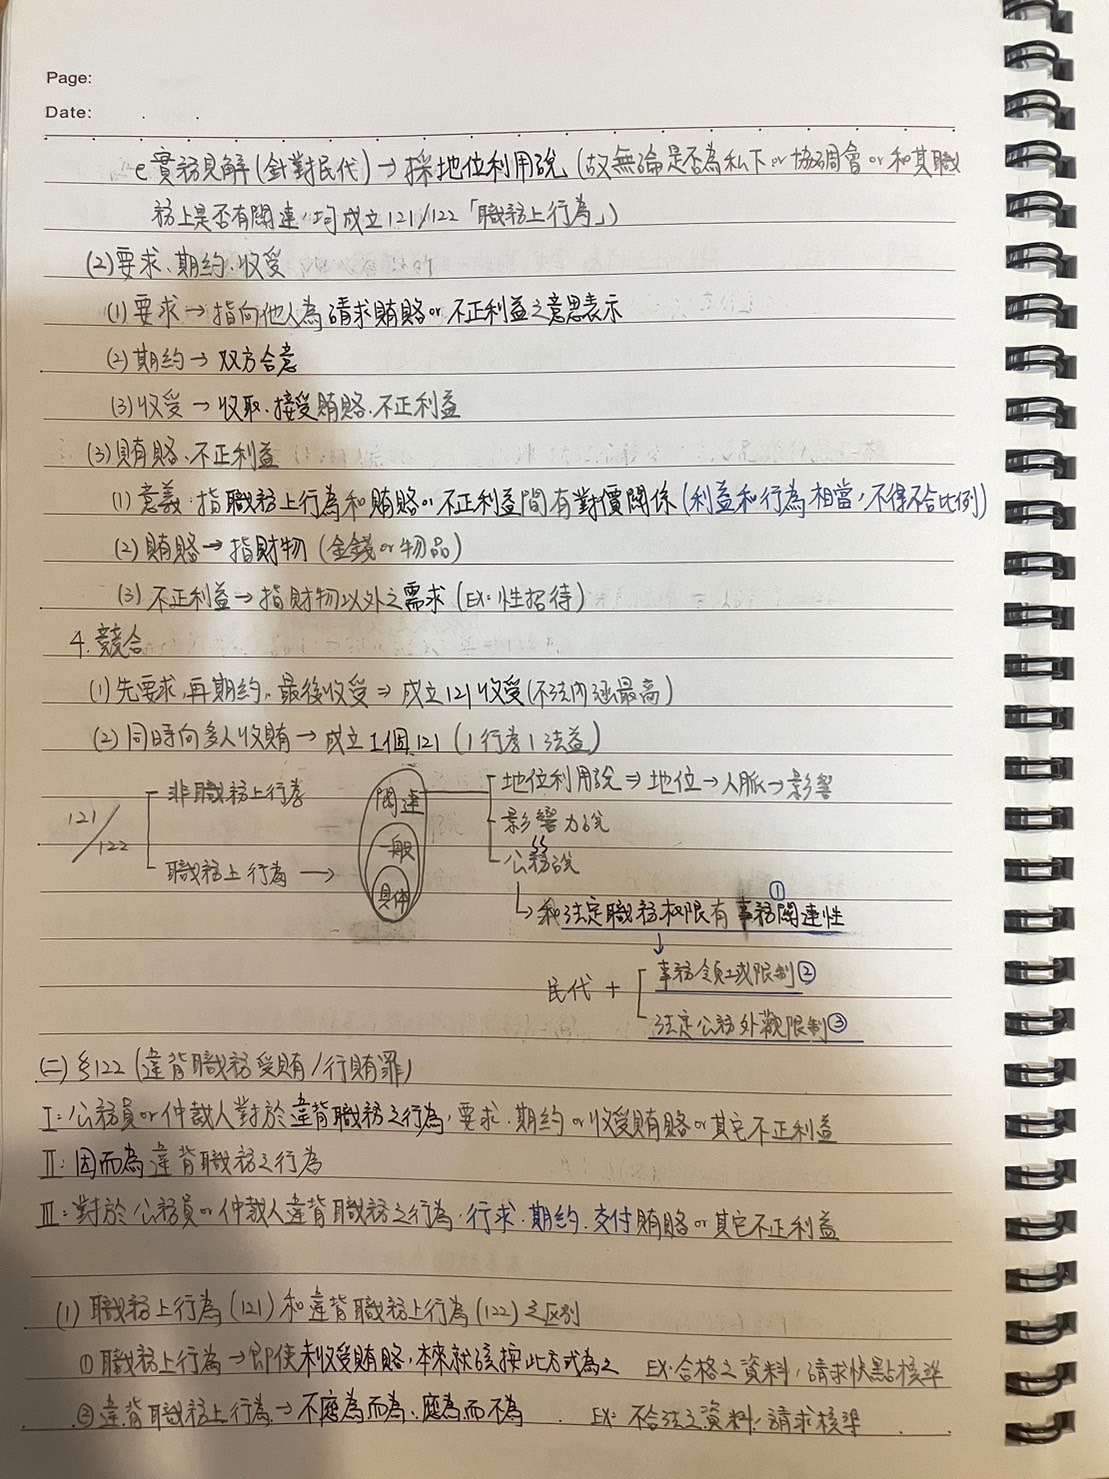 Page:
Date:
e 實務見解(針對民代)→採地位利用說(故無論是否為私下or協調會or和其職
務上是否有關連,均成立121/122「職務上行為」)
(2)要求、期約、收受
(1)要求→指向他人為請求賄賂or不正利益之意思表示
(2)期約→双方合意
(3)收受→收取、接受賄賂、不正利益
(3)賄賂、不正利益
(1)意義:指職務上行為和賄賂or不正利益間有對價關係(利益和行為相當,不得不合比例)
(2)賄賂→指財物(金錢or物品)
(3)不正利益→指財物以外之需求(EX:性招待)
4.競合
(1)先要求,再期約,最後收受⇒成立121收受(不法內涵最高)
(2)同時向多人收賄→成立1個121(1行為1法益)
121/122
非職務上行為
職務上行為→
關連
一般
具体
地位利用說⇒地位→人脈→影響
影響力說
公務說
↳和法定職務權限有事務關連性①
民代+
事務領域限制②
法定公務外觀限制③
(二)§122(違背職務受賄/行賄罪)
I:公務員or仲裁人對於違背職務之行為,要求、期約or收受賄賂or其它不正利益
II:因而為違背職務之行為
III:對於公務員or仲裁人違背職務之行為,行求、期約、交付賄賂or其它不正利益
(1)職務上行為(121)和違背職務上行為(122)之区別
①職務上行為→即使未收受賄賂,本來就該按此方式為之 EX:合格之資料,請求快點核準
②違背職務上行為→不應為而為、應為而不為 EX:不合法之資料,請求核準